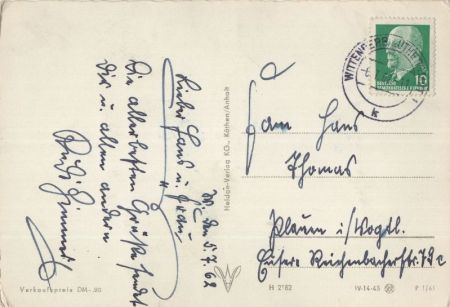 W. den 5.7.62
Lieber Hans u.
Die allerbesten Grüße sendet
Dir u. allen andern
Rudi Zimmer
Heldge-Verlag KG., Köthen/Anhalt
WITTENBERG LUTHERSTADT
k
DEUTSCHE
DEMOKRATISCHE REPUBLIK
10
Fam Hans
Thomas
Plauen i/Vogtl.
Äußere Reichenbacherstr 79c
Verkaufspreis DM -.20
H 2162
IV-14-45
P 1/61